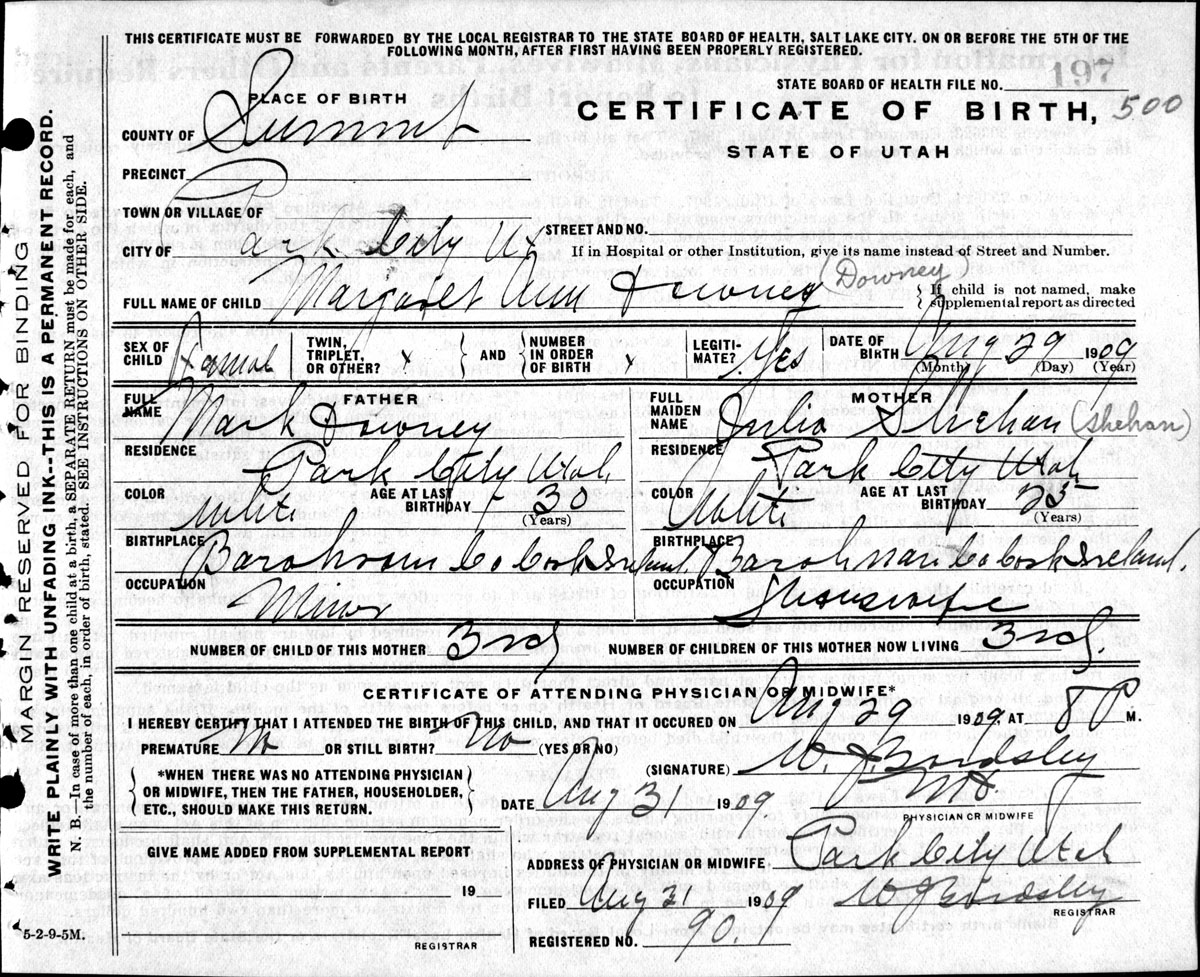 THIS CERTIFICATE MUST BE FORWARDED BY THE LOCAL REGISTRAR TO THE STATE BOARD OF HEALTH, SALT LAKE CITY. ON OR BEFORE THE 5TH OF THE
FOLLOWING MONTH, AFTER FIRST HAVING BEEN PROPERLY REGISTERED.
STATE BOARD OF HEALTH FILE NO. 197
PLACE OF BIRTH
CERTIFICATE OF BIRTH, 500
COUNTY OF Summit
STATE OF UTAH
PRECINCT
TOWN OR VILLAGE OF
STREET AND NO.
CITY OF Park City Ut
If in Hospital or other Institution, give its name instead of Street and Number.
FULL NAME OF CHILD Margaret Ann Downey Downey
If child is not named, make
supplemental report as directed
SEX OF CHILD Female
TWIN, TRIPLET, OR OTHER? x
AND
NUMBER IN ORDER OF BIRTH x
LEGITIMATE? Yes
DATE OF BIRTH Aug 29 1909
(Month) (Day) (Year)
FATHER
FULL NAME Mark Downey
RESIDENCE Park City Utah
COLOR White
AGE AT LAST BIRTHDAY 30
(Years)
BIRTHPLACE Co Cork Ireland
OCCUPATION Miner
MOTHER
FULL MAIDEN NAME Julia Shehan (Shehan)
RESIDENCE Park City Utah
COLOR White
AGE AT LAST BIRTHDAY 25
(Years)
BIRTHPLACE Co Cork Ireland.
OCCUPATION Housewife
NUMBER OF CHILD OF THIS MOTHER 3rd
NUMBER OF CHILDREN OF THIS MOTHER NOW LIVING 3rd.
CERTIFICATE OF ATTENDING PHYSICIAN OR MIDWIFE*
I HEREBY CERTIFY THAT I ATTENDED THE BIRTH OF THIS CHILD, AND THAT IT OCCURED ON Aug 29 1909. AT 8 P M.
PREMATURE No OR STILL BIRTH? No (YES OR NO)
*WHEN THERE WAS NO ATTENDING PHYSICIAN
OR MIDWIFE, THEN THE FATHER, HOUSEHOLDER,
ETC., SHOULD MAKE THIS RETURN.
(SIGNATURE) W. J. Bardsley
DATE Aug 31 1909 MD
PHYSICIAN OR MIDWIFE
GIVEN NAME ADDED FROM SUPPLEMENTAL REPORT
19
REGISTRAR
ADDRESS OF PHYSICIAN OR MIDWIFE, Park City Utah
FILED Aug 31 1909 W J Bardsley
REGISTRAR
REGISTERED NO. 90.
5-2-9-5M.
MARGIN RESERVED FOR BINDING
WRITE PLAINLY WITH UNFADING INK--THIS IS A PERMANENT RECORD.
N. B.--In case of more than one child at a birth, a SEPARATE RETURN must be made for each, and
the number of each, in order of birth, stated. SEE INSTRUCTIONS ON OTHER SIDE.